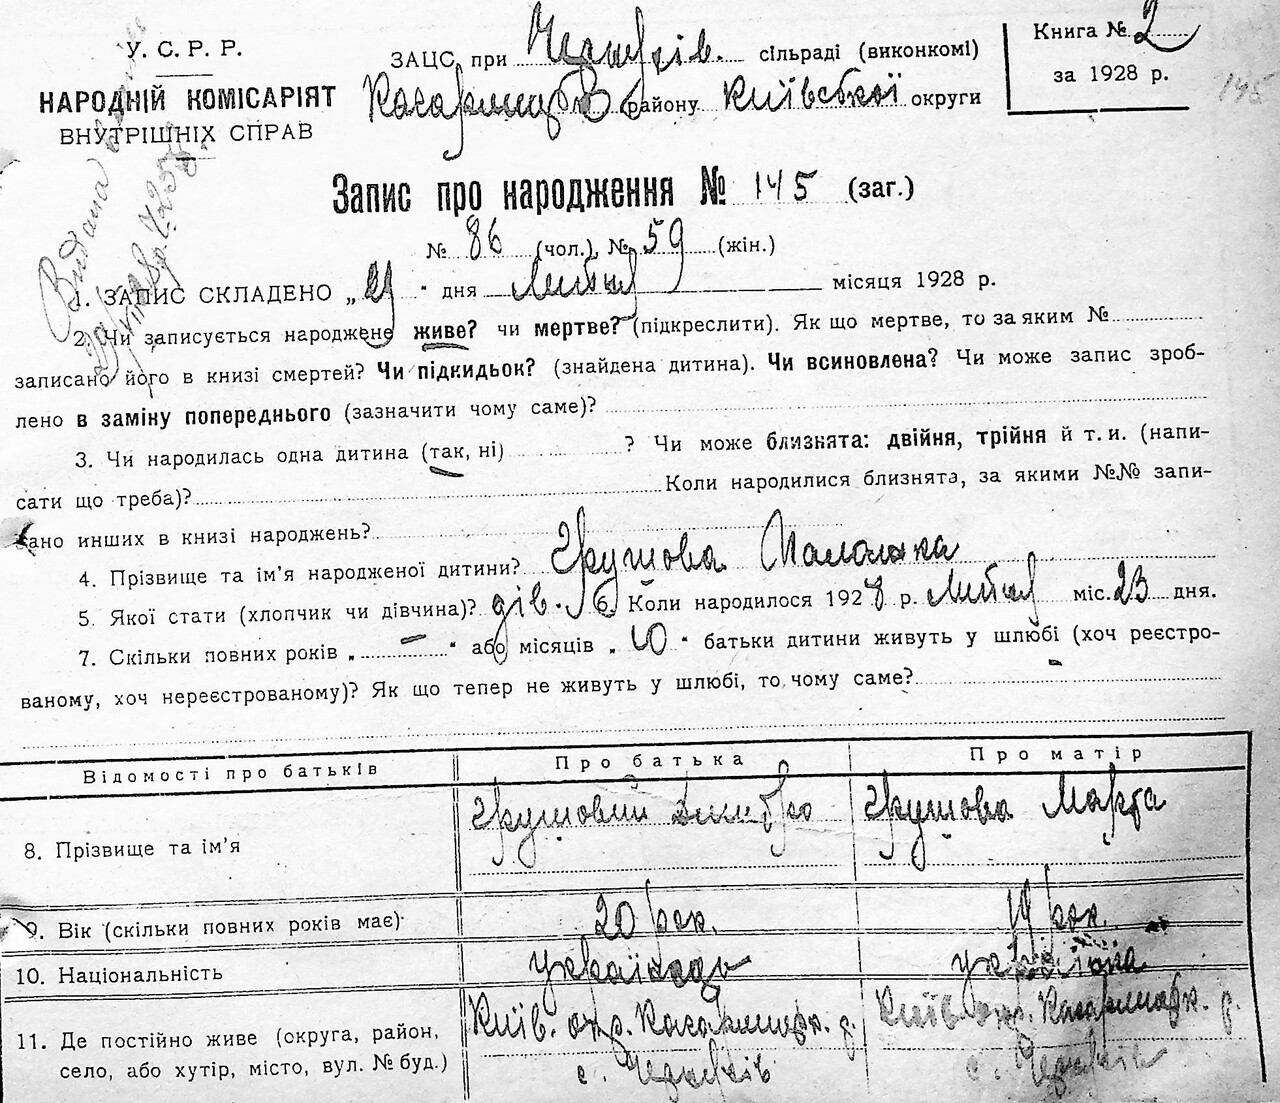 У. С. Р. Р.
НАРОДНІЙ КОМІСАРІЯТ
ВНУТРІШНІХ СПРАВ
ЗАЦС при сільраді (виконкомі)
району Київської округи
Книга № 2
за 1928 р.
145
Видана
Запис про народження № 145 (заг.)
№ 86 (чол.), № 59 (жін.)
1. ЗАПИС СКЛАДЕНО „ " дня місяця 1928 р.
2. Чи записується народжене живе? чи мертве? (підкреслити). Як що мертве, то за яким №
записано його в книзі смертей? Чи підкидьок? (знайдена дитина). Чи всиновлена? Чи може запис зроб-
лено в заміку попереднього (зазначити чому саме)?
3. Чи народилась одна дитина (так, ні) ? Чи може близнята: двійня, трійня й т. и. (напи-
сати що треба)? Коли народилися близнята, за якими №№ запи-
сано инших в книзі народжень?
4. Прізвище та ім'я народженої дитини? Грушова
5. Якої стати (хлопчик чи дівчина)? дів. 6. Коли народилося 1928 р. міс. 23 дня.
7. Скільки повних років „ — " або місяців „ 10 " батьки дитини живуть у шлюбі (хоч реєстро-
ваному, хоч нереєстрованому)? Як що тепер не живуть у шлюбі, то чому саме?
Відомості про батьків Про батька Про матір
8. Прізвище та ім'я Грушовий Дмитро Грушова Марта
9. Вік (скільки повних років має) 20 рок. 19 рок.
10. Національність українець українка
11. Де постійно живе (округа, район, Київ. окр. Кагарлицьк. р. Київ. окр. Кагарлицьк. р.
село, або хутір, місто, вул. № буд.) с. с.